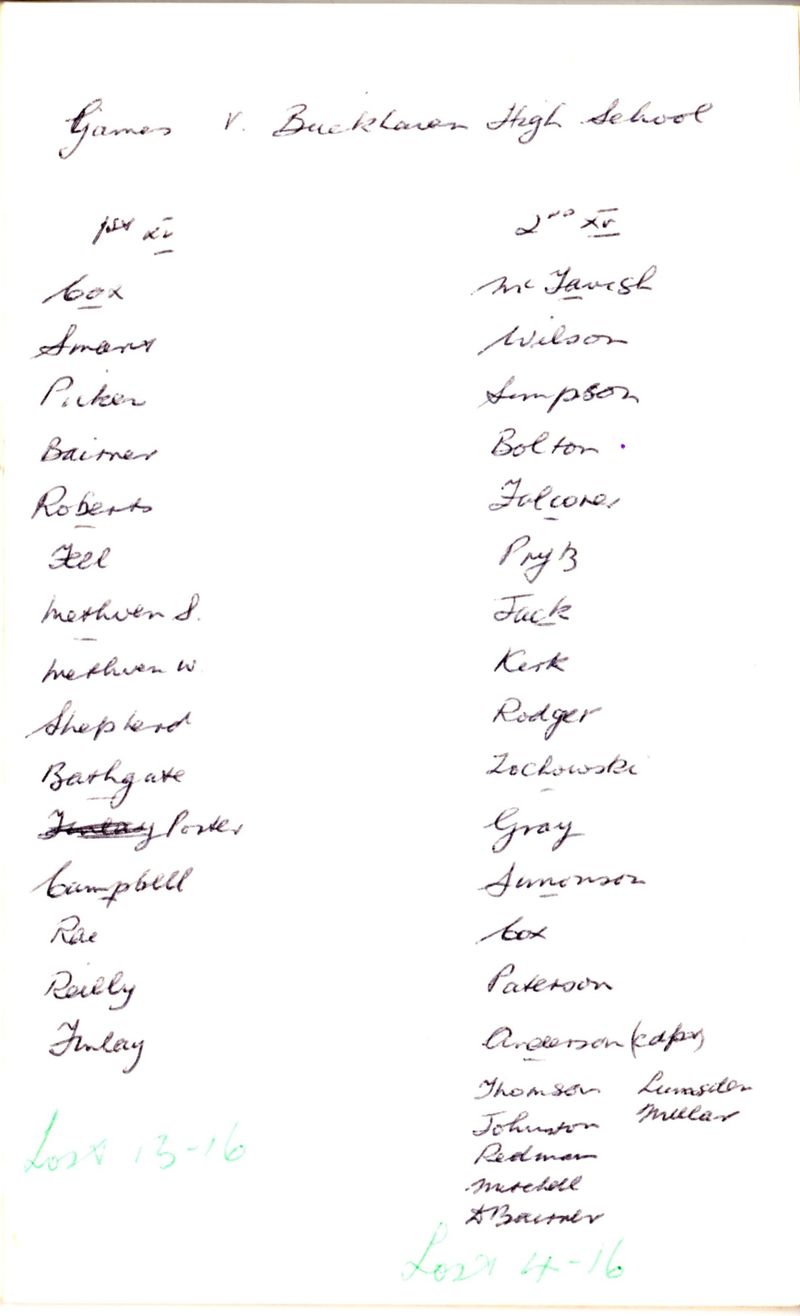 Games v. Buckhaven High School
1st XV
Cox
Smart
Picken
Bairner
Roberts
Fell
Methven S.
Methven W.
Shepherd
Bathgate
Finlay Porter
Campbell
Rae
Reilly
Finlay
Lost 13-16
2nd XV
McTavish
Wilson
Simpson
Bolton
Falconer
Jack
Kirk
Rodger
Zochowski
Gray
Simonson
Cox
Paterson
Anderson (capt)
Thomson Lumsden
Johnston Millar
Redman
Mitchell
D Bairner
Lost 4-16